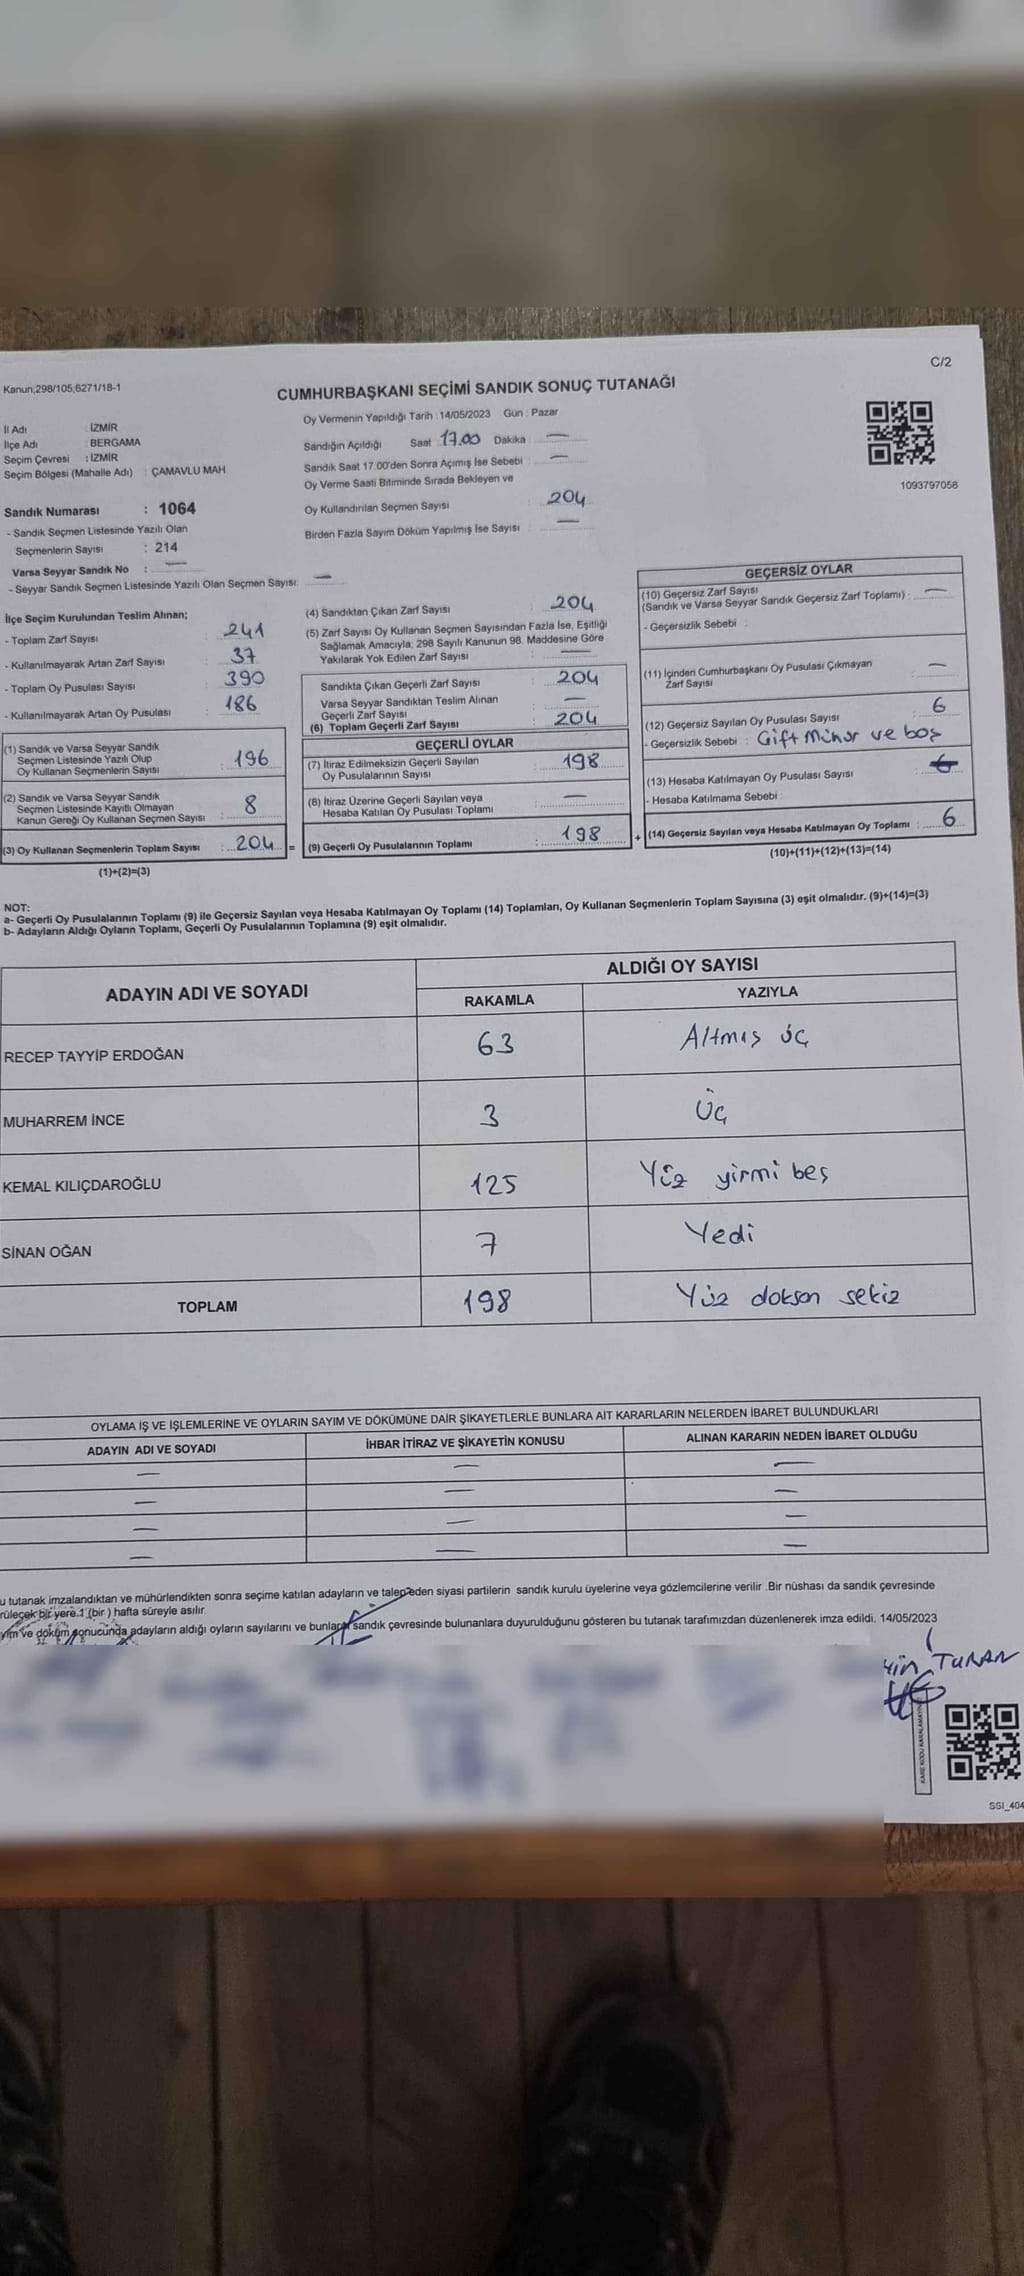 C/2
Kanun;298/105;6271/18-1
CUMHURBAŞKANI SEÇİMİ SANDIK SONUÇ TUTANAĞI
İl Adı : İZMİR
İlçe Adı : BERGAMA
Seçim Çevresi : İZMİR
Seçim Bölgesi (Mahalle Adı) : ÇAMAVLU MAH.
Sandık Numarası : 1064
- Sandık Seçmen Listesinde Yazılı Olan
Seçmenlerin Sayısı : 214
Varsa Seyyar Sandık No : —
- Seyyar Sandık Seçmen Listesinde Yazılı Olan Seçmen Sayısı: —
Oy Vermenin Yapıldığı Tarih : 14/05/2023 Gün : Pazar
Sandığın Açıldığı Saat 17.00 Dakika : —
Sandık Saat 17:00'den Sonra Açımış İse Sebebi : —
Oy Verme Saati Bitiminde Sırada Bekleyen ve
Oy Kullandırılan Seçmen Sayısı : 204
Birden Fazla Sayım Döküm Yapılmış İse Sayısı : —
1093797058
İlçe Seçim Kurulundan Teslim Alınan;
- Toplam Zarf Sayısı : 241
- Kullanılmayarak Artan Zarf Sayısı : 37
- Toplam Oy Pusulası Sayısı : 390
- Kullanılmayarak Artan Oy Pusulası : 186
(1) Sandık ve Varsa Seyyar Sandık
Seçmen Listesinde Yazılı Olup
Oy Kullanan Seçmenlerin Sayısı : 196
(2) Sandık ve Varsa Seyyar Sandık
Seçmen Listesinde Kayıtlı Olmayan
Kanun Gereği Oy Kullanan Seçmen Sayısı : 8
(3) Oy Kullanan Seçmenlerin Toplam Sayısı : 204 =
(1)+(2)=(3)
(4) Sandıktan Çıkan Zarf Sayısı : 204
(5) Zarf Sayısı Oy Kullanan Seçmen Sayısından Fazla İse, Eşitliği
Sağlamak Amacıyla, 298 Sayılı Kanunun 98. Maddesine Göre
Yakılarak Yok Edilen Zarf Sayısı : —
Sandıkta Çıkan Geçerli Zarf Sayısı : 204
Varsa Seyyar Sandıktan Teslim Alınan
Geçerli Zarf Sayısı : —
(6) Toplam Geçerli Zarf Sayısı : 204
GEÇERLİ OYLAR
(7) İtiraz Edilmeksizin Geçerli Sayılan
Oy Pusulalarının Sayısı : 198
(8) İtiraz Üzerine Geçerli Sayılan veya
Hesaba Katılan Oy Pusulası Toplamı : —
(9) Geçerli Oy Pusulalarının Toplamı : 198 +
GEÇERSİZ OYLAR
(10) Geçersiz Zarf Sayısı
(Sandık ve Varsa Seyyar Sandık Geçersiz Zarf Toplamı) : —
- Geçersizlik Sebebi :
(11) İçinden Cumhurbaşkanı Oy Pusulası Çıkmayan
Zarf Sayısı : —
(12) Geçersiz Sayılan Oy Pusulası Sayısı : 6
- Geçersizlik Sebebi : Çift Mühür ve boş
(13) Hesaba Katılmayan Oy Pusulası Sayısı : 6
- Hesaba Katılmama Sebebi :
(14) Geçersiz Sayılan veya Hesaba Katılmayan Oy Toplamı : 6
(10)+(11)+(12)+(13)=(14)
NOT:
a- Geçerli Oy Pusulalarının Toplamı (9) ile Geçersiz Sayılan veya Hesaba Katılmayan Oy Toplamı (14) Toplamları, Oy Kullanan Seçmenlerin Toplam Sayısına (3) eşit olmalıdır. (9)+(14)=(3)
b- Adayların Aldığı Oyların Toplamı, Geçerli Oy Pusulalarının Toplamına (9) eşit olmalıdır.
ADAYIN ADI VE SOYADI
ALDIĞI OY SAYISI
RAKAMLA YAZIYLA
RECEP TAYYİP ERDOĞAN 63 Altmış üç
MUHARREM İNCE 3 Üç
KEMAL KILIÇDAROĞLU 125 Yüz yirmi beş
SİNAN OĞAN 7 Yedi
TOPLAM 198 Yüz doksan sekiz
OYLAMA İŞ VE İŞLEMLERİNE VE OYLARIN SAYIM VE DÖKÜMÜNE DAİR ŞİKAYETLERLE BUNLARA AİT KARARLARIN NELERDEN İBARET BULUNDUKLARI
ADAYIN ADI VE SOYADI İHBAR İTİRAZ VE ŞİKAYETİN KONUSU ALINAN KARARIN NEDEN İBARET OLDUĞU
— — —
— — —
— — —
— — —
u tutanak imzalandıktan ve mühürlendikten sonra seçime katılan adayların ve talep eden siyasi partilerin sandık kurulu üyelerine veya gözlemcilerine verilir .Bir nüshası da sandık çevresinde
rülecek bir yere 1 (bir ) hafta süreyle asılır.
yım ve döküm sonucunda adayların aldığı oyların sayılarını ve bunların sandık çevresinde bulunanlara duyurulduğunu gösteren bu tutanak tarafımızdan düzenlenerek imza edildi. 14/05/2023
TURAN
KARE KODU KARALAMAYINIZ
SSI_404